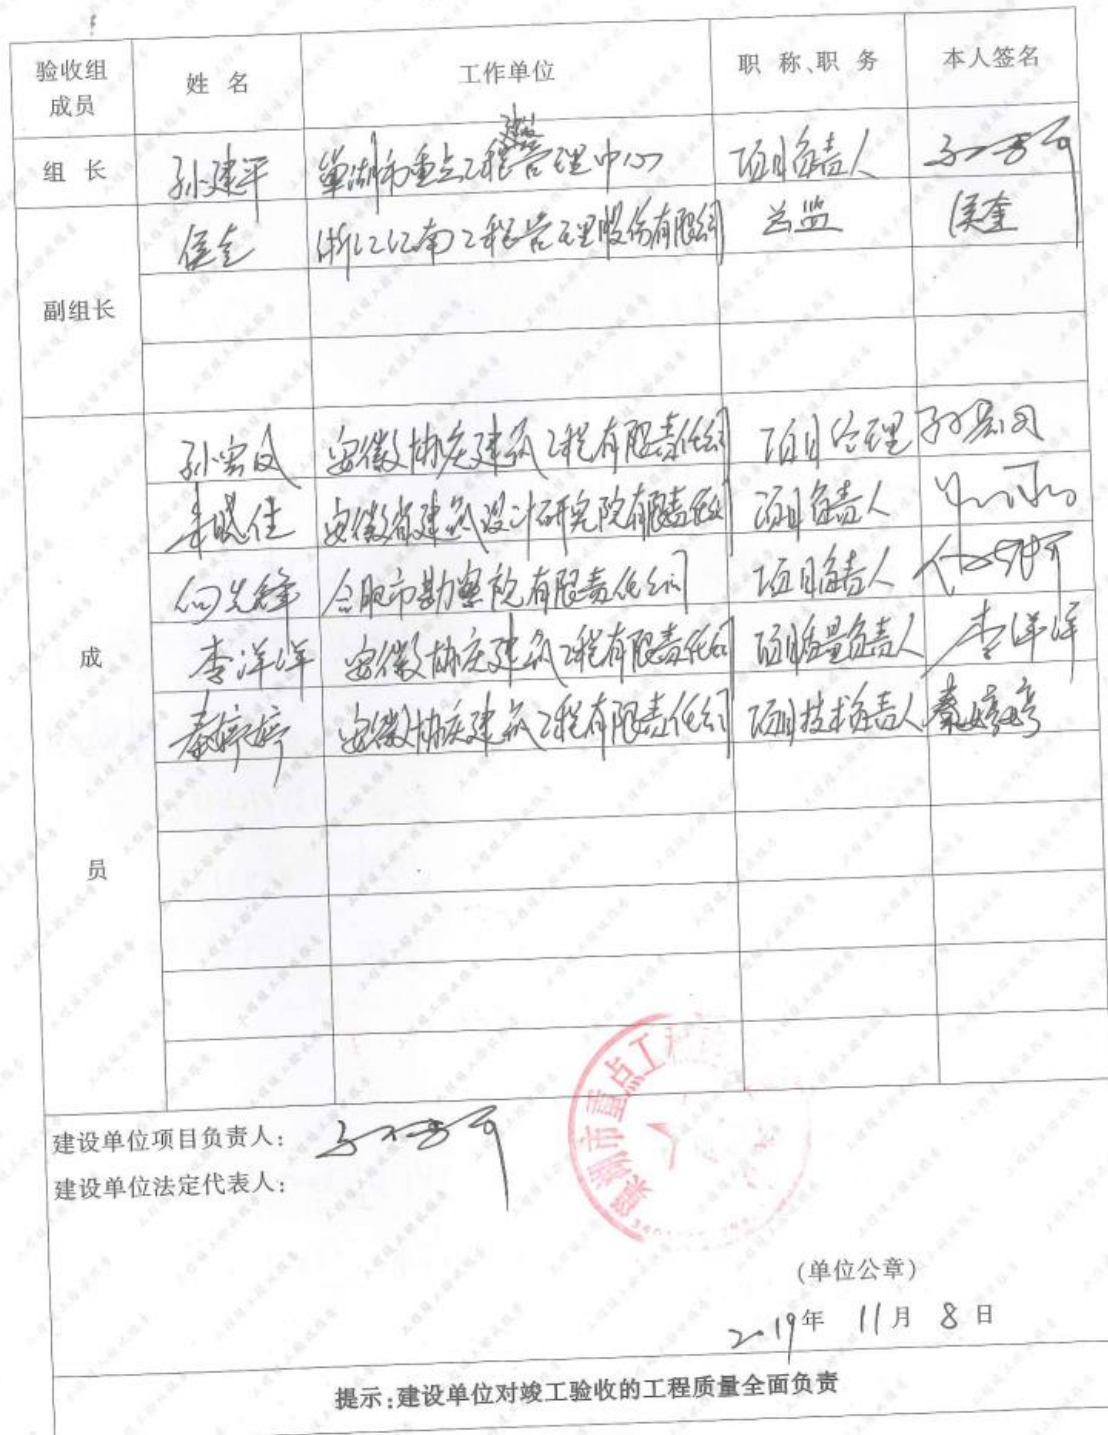 验收组成员 姓 名 工作单位 职 称、职 务 本人签名
组 长 孙建平 巢湖市重点工程建设管理中心 项目负责人
侯奎 浙江江南工程管理股份有限公司 总监 侯奎
副组长
安徽协庆建筑工程有限责任公司 项目经理
朱晓佳 安徽省建筑设计研究院有限责任公司 项目负责人
何先锋 合肥市勘察院有限责任公司 项目负责人
李洋洋 安徽协庆建筑工程有限责任公司 项目质量负责人 李洋洋
秦婷婷 安徽协庆建筑工程有限责任公司 项目技术负责人 秦婷婷
成员
建设单位项目负责人:
建设单位法定代表人:
巢湖市重点工程
(单位公章)
2019年 11月 8日
提示:建设单位对竣工验收的工程质量全面负责